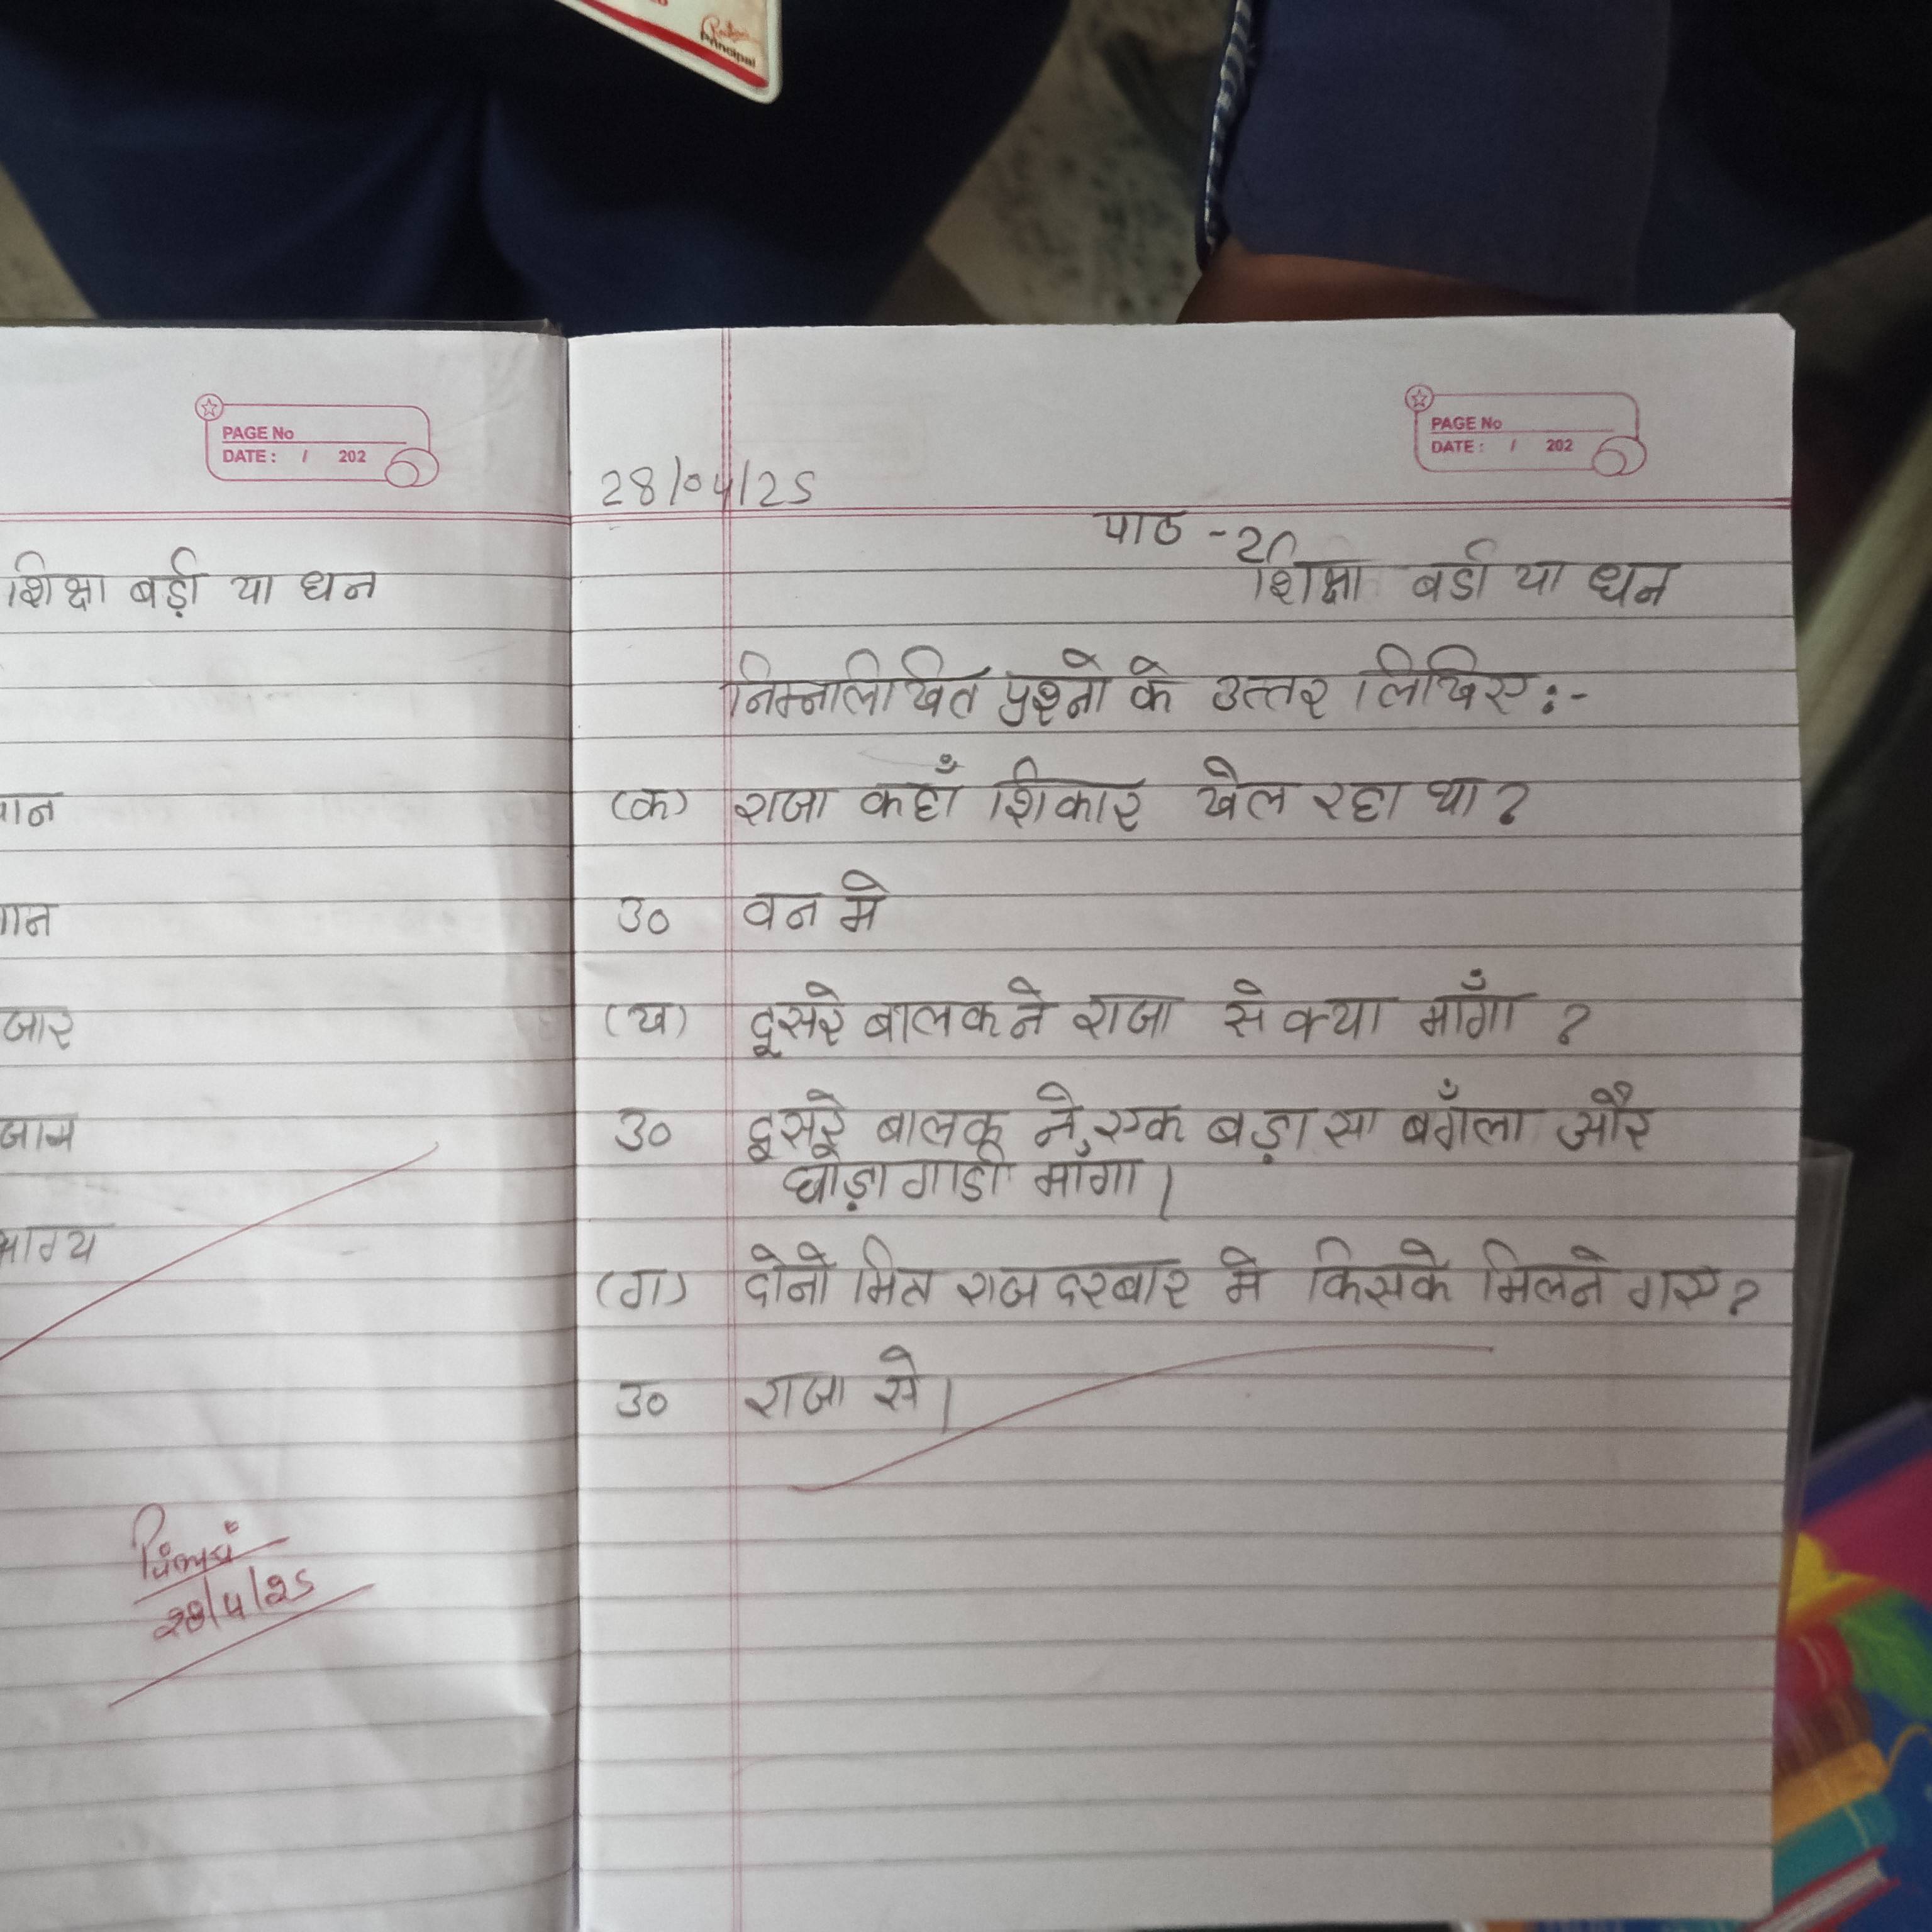 Principal
PAGE No
DATE : / 202
शिक्षा बड़ी या धन
जार
28/4/25
PAGE No
DATE : / 202
28/04/25
पाठ - 2
शिक्षा बडी या धन
निम्नलिखित प्रश्नो के उत्तर लिखिए:-
(क) राजा कहाँ शिकार खेल रहा था?
उ० वन मे
(ख) दूसरे बालक ने राजा से क्या माँगा ?
उ० दूसरे बालक ने, एक बड़ा सा बँगला और
घोड़ा गाडी माँगा।
(ग) दोनो मित्र राज दरबार मे किसके मिलने गए?
उ० राजा से।